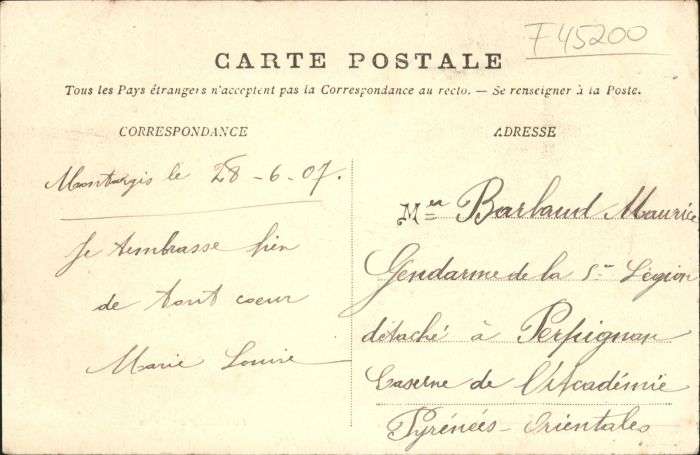 F45200
CARTE POSTALE
Tous les Pays étrangers n'acceptent pas la Correspondance au recto. — Se renseigner à la Poste.
CORRESPONDANCE
ADRESSE
Montargis le 28-6-07.
Je t'embrasse bien
de tout coeur
Marie Louise
Mer Barbaud Maurice
Gendarme de la 5me Légion
détaché à Perpignan
Caserne de l'Académie
Pyrénées-Orientales